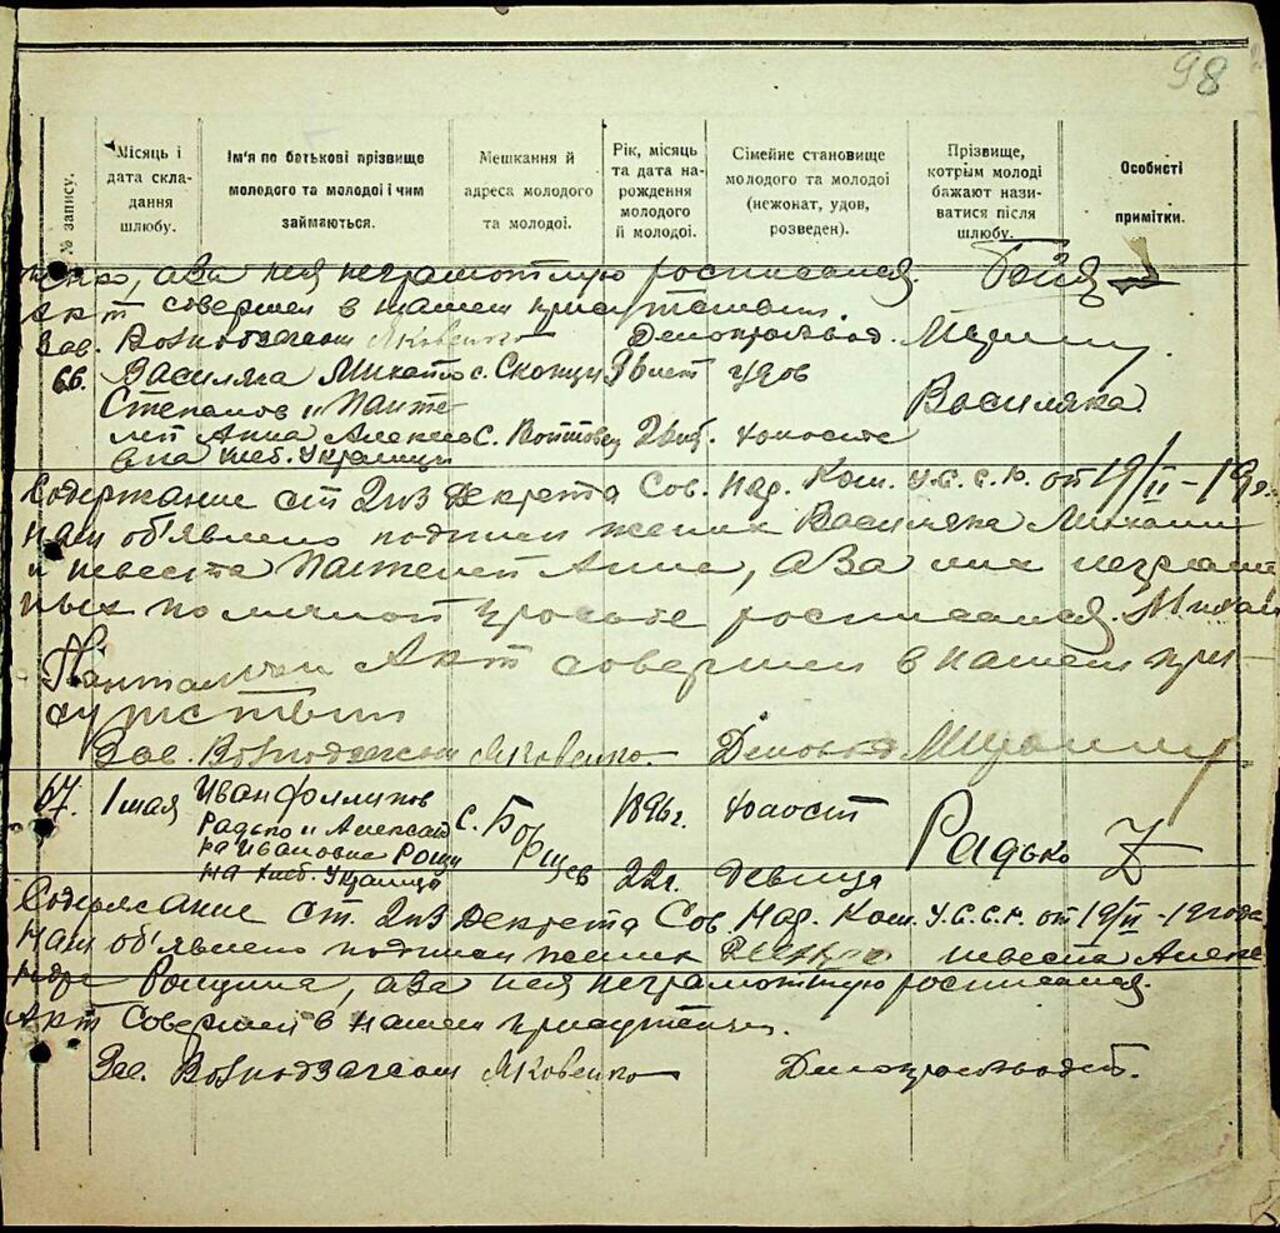 98
№ запису.
Місяць і дата скла- дання шлюбу.
Ім'я по батькові прізвище молодого та молодої і чим займаються.
Мешкання й адреса молодого та молодої.
Рік, місяць та дата на- рождення молодого й молодої.
Сімейне становище молодого та молодої (нежонат, удов, розведен).
Прізвище, котрым молоді бажают нази- ватися після шлюбу.
Особисті примітки.
а за нея неграмотную росписался.
Акт совершен в нашем присутствии.
Зав. Волподзагсом Яковенко Делопроизвод.
66. Василяка с. 36 лет удов
Степанов и Панте- Василяка
лей Анна Алексее с. 26 л.
вна хлеб. Украинцы
Содержание ст 2 и 3 Декрета Сов. Нар. Ком. У.С.С.Р. от 19/II – 19 г.
нам об'явлено подписи жених Василяка Михаил
и невеста Пантелей Анна, а за них неграмот
ных по личной просьбе росписался. Михаил
Акт совершен в нашем при-
сутствии
Зав. Волподзагсом Яковенко. Делопр
67. 1 мая Иван Филипов с. Борщев 1896 г. холост Радько
Радько и Александ
ра Ивановна Рощи
на хлеб. Украинцы 22 г. девица
Содержание ст. 2 и 3 Декрета Сов. Нар. Ком. У.С.С.Р. от 19/II - 19 года
нам об'явлено подписи жених невеста Алекса
ндра Рощина, а за нея неграмотную росписался.
Акт совершен в нашем присутствии.
Зав. Волподзагсом Яковенко Делопроизводит.